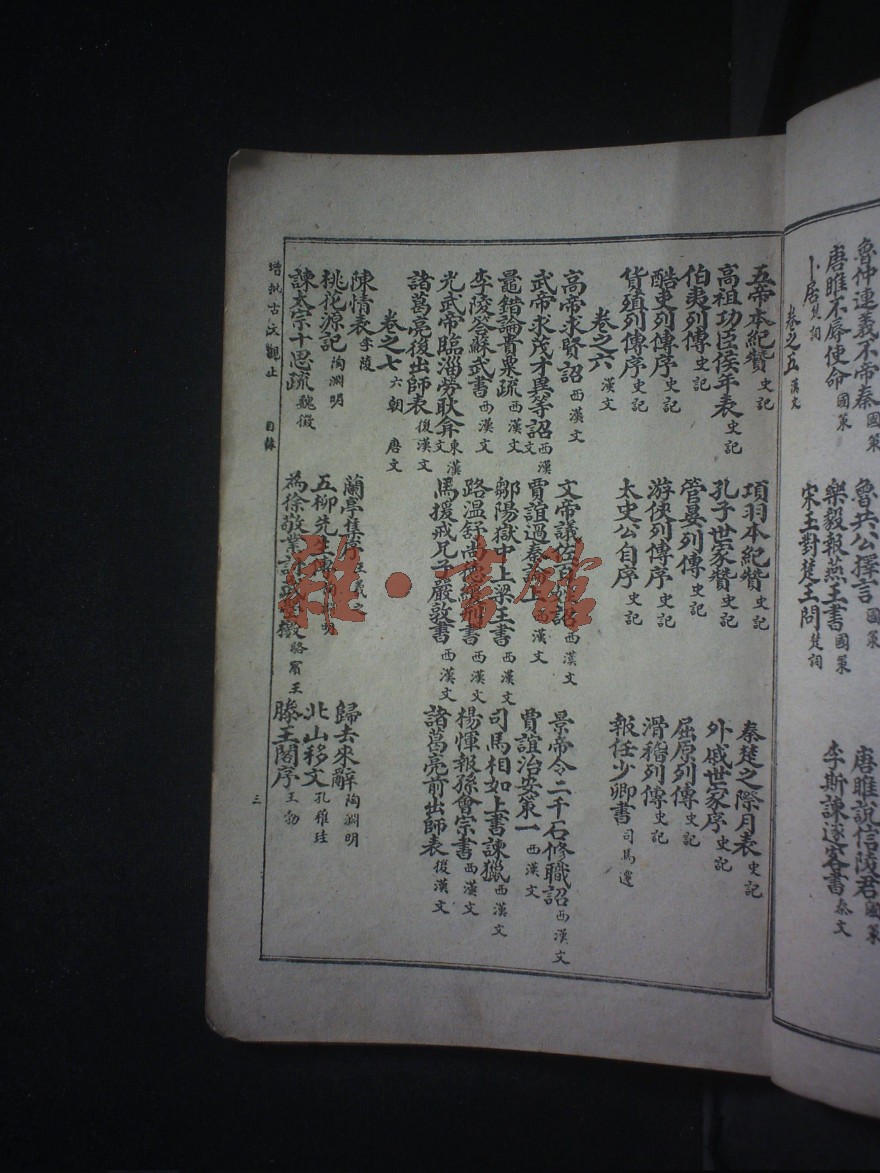 魯仲連義不帝秦 國策 魯共公擇言 國策 唐雎說信陵君 國策
唐雎不辱使命 國策 樂毅報燕王書 國策 李斯諫逐客書 秦文
卜居 楚詞 宋玉對楚王問 楚詞
卷之五 漢文
五帝本紀贊 史記 項羽本紀贊 史記 秦楚之際月表 史記
高祖功臣侯年表 史記 孔子世家贊 史記 外戚世家序 史記
伯夷列傳 史記 管晏列傳 史記 屈原列傳 史記
酷吏列傳序 史記 游俠列傳序 史記 滑稽列傳 史記
貨殖列傳序 史記 太史公自序 史記 報任少卿書 司馬遷
卷之六 漢文
高帝求賢詔 西漢文 文帝議佐百姓詔 西漢文 景帝令二千石修職詔 西漢文
武帝求茂才異等詔 西漢文 賈誼過秦論上 西漢文 賈誼治安策一 西漢文
鼂錯論貴粟疏 西漢文 鄒陽獄中上梁王書 西漢文 司馬相如上書諫獵 西漢文
李陵答蘇武書 西漢文 路溫舒尚德緩刑書 西漢文 楊惲報孫會宗書 西漢文
光武帝臨淄勞耿弇 東漢文 馬援戒兄子嚴敦書 西漢文 諸葛亮前出師表 後漢文
諸葛亮後出師表 後漢文
卷之七 六朝 唐文
陳情表 李陵 蘭亭集序 王羲之 歸去來辭 陶淵明
桃花源記 陶淵明 五柳先生傳 陶淵明 北山移文 孔稚珪
諫太宗十思疏 魏徵 為徐敬業討武曌檄 駱賓王 滕王閣序 王勃
增批古文觀止 目錄 三
雒·書館